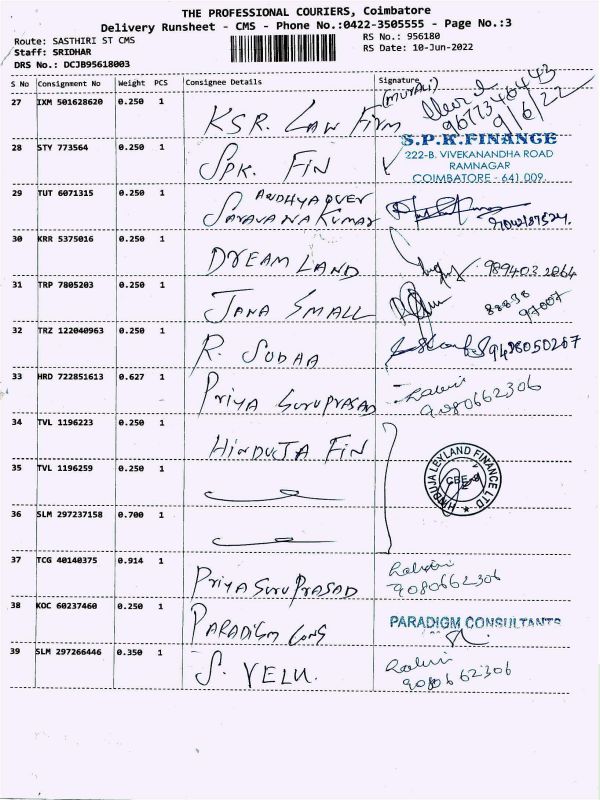 THE PROFESSIONAL COURIERS, Coimbatore
Delivery Runsheet - CMS - Phone No.:0422-3505555 - Page No.:3
Route: SASTHIRI ST CMS
Staff: SRIDHAR
DRS No.: DCJB95618003
RS No.: 956180
RS Date: 10-Jun-2022
S No Consignment No Weight PCS Consignee Details Signature
27 IXM 501628620 0.250 1 KSR. LAW FIRM (MURALI) 9/6/22
28 STY 773564 0.250 1 SPK. FIN
S.P.K.FINANCE
222-B, VIVEKANANDHA ROAD
RAMNAGAR
COIMBATORE - 641 009.
29 TUT 6071315 0.250 1 SARAVANA KUMAR
30 KRR 5375016 0.250 1 DREAM LAND
31 TRP 7805203 0.250 1 JANA SMALL 88838 97007
32 TRZ 122040963 0.250 1 R. SUDAA
33 HRD 722851613 0.627 1 PRIYA GURUPRASAD 9080662306
34 TVL 1196223 0.250 1 HINDUJA FIN
35 TVL 1196259 0.250 1
HINDUJA LEYLAND FINANCE LTD
CBE
36 SLM 297237158 0.700 1
37 TCG 40140375 0.914 1 PRIYA GURUPRASAD 9080662306
38 KOC 60237460 0.250 1 PARADIGM CONS PARADIGM CONSULTANTS
39 SLM 297266446 0.350 1 S. VELU. 9080662306